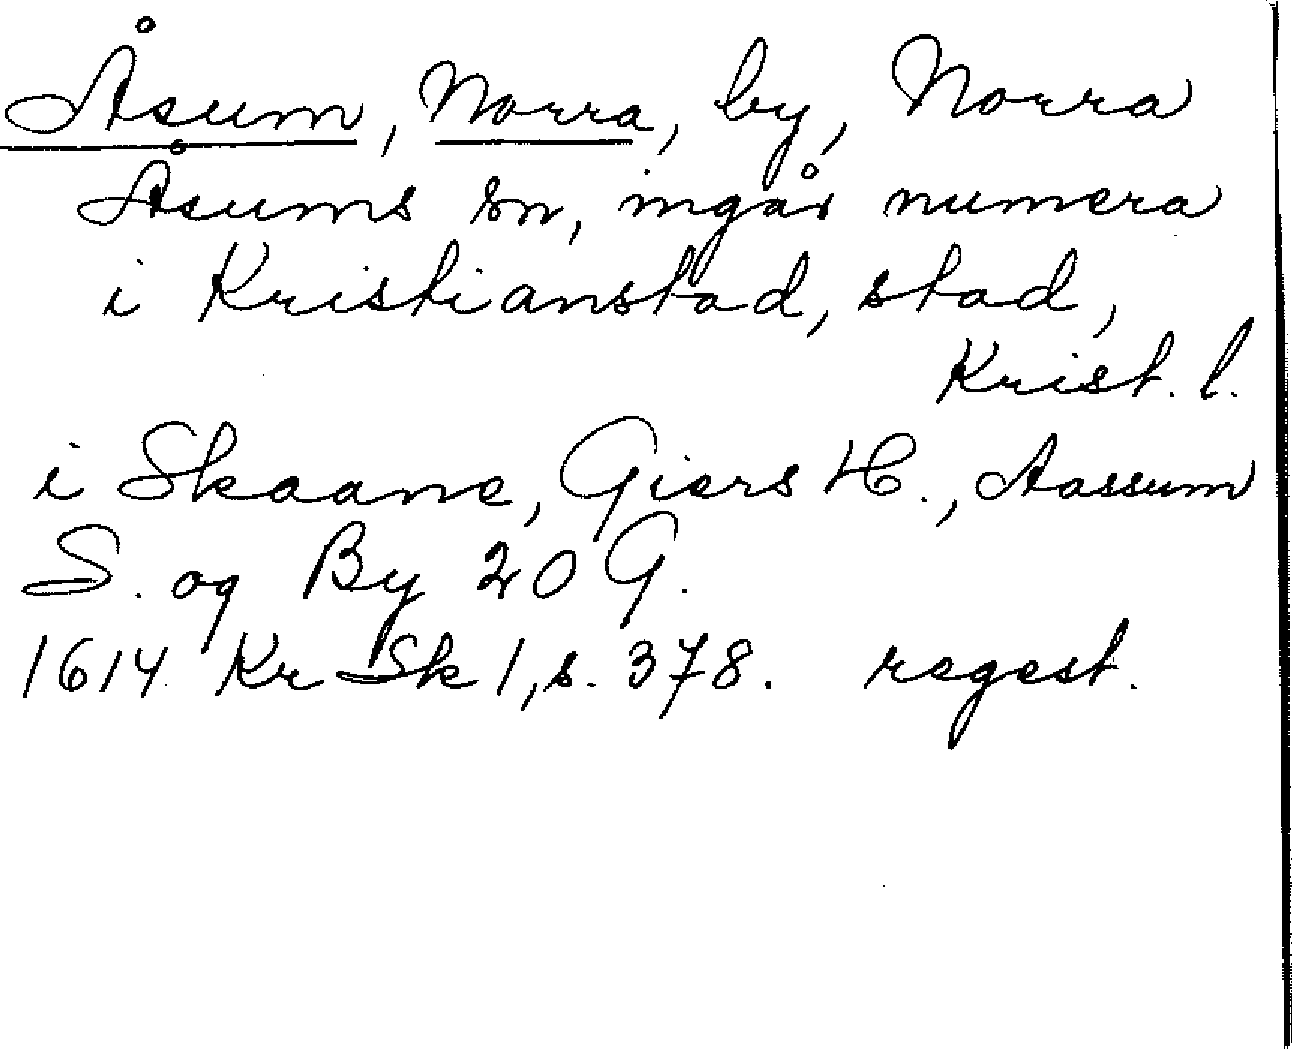 Åsum, Norra, by, Norra
Åsums sn, ingår numera
i Kristianstad, stad,
Krist. l.
i Skaane, Giers H., Aassum
S. og By 20 G.
1614 Kr Sk 1, s. 378. regest.